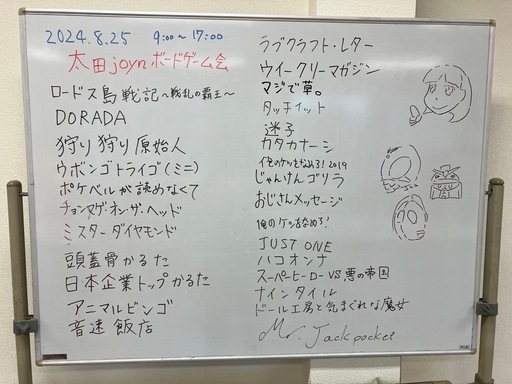 2024.8.25 9:00〜17:00
太田joynボードゲーム会
ロードス島戦記〜戦乱の覇王〜
DORADA
狩り狩り原始人
ウボンゴトライゴ(ミニ)
ポケベルが読めなくて
チョンマゲ・オン・ザ・ヘッド
ミスターダイヤモンド
頭蓋骨かるた
日本企業トップかるた
アニマルビンゴ
音速飯店
ラブクラフト・レター
ウイークリーマガジン
マジで草。
タッチイット
迷子
カタカナーシ
俺のケツをなめろ!2019
じゃんけんゴリラ
おじさんメッセージ
俺のケツをなめろ!
JUST ONE
ハコオンナ
スーパーヒーローVS悪の帝国
ナインタイル
ドール工房と気まぐれな魔女
Mr. Jack pocket